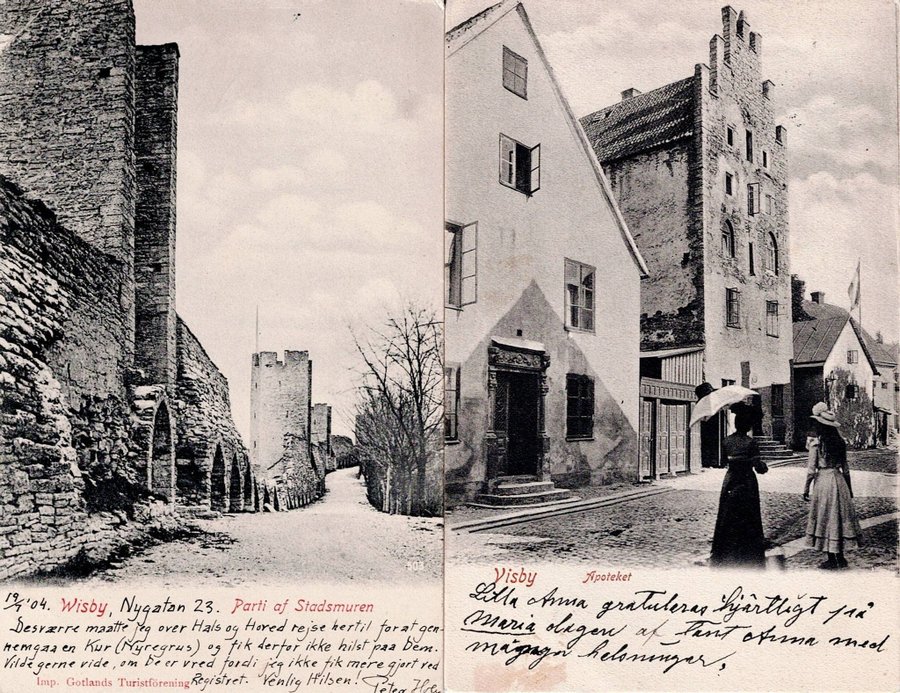 19/7 '04. Wisby, Nygatan 23. Parti af Stadsmuren
Desværre maatte jeg over Hals og Hoved rejse hertil for at gen-
nemgaa en Kur (Nyregrus) og fik derfor ikke hilst paa Dem.
Vilde gerne vide, om De er vred fordi jeg ikke fik mere gjort ved
Registret. Venlig Hilsen! Peter
Imp. Gotlands Turistförening
Visby Apoteket
Lilla Anna gratuleras hjärtligt på
Maria dagen af Tant Anna med
många helsningar,